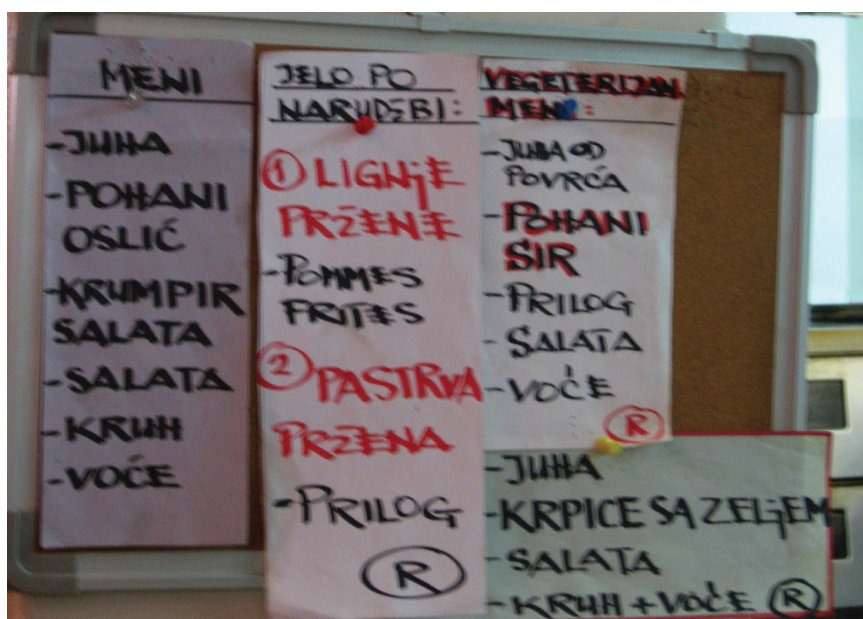 MENI
-JUHA
-POHANI
OSLIĆ
-KRUMPIR
SALATA
-SALATA
-KRUH
-VOĆE
JELO PO
NARUDŽBI:
1 LIGNjE
PRŽENE
-POMMES
FRITES
2 PASTRVA
PRŽENA
-PRILOG
R
VEGETERIJAN.
MENI:
-JUHA OD
POVRĆA
-POHANI
SIR
-PRILOG
-SALATA
-VOĆE
R
-JUHA
-KRPICE SA ZELjEM
-SALATA
-KRUH + VOĆE R